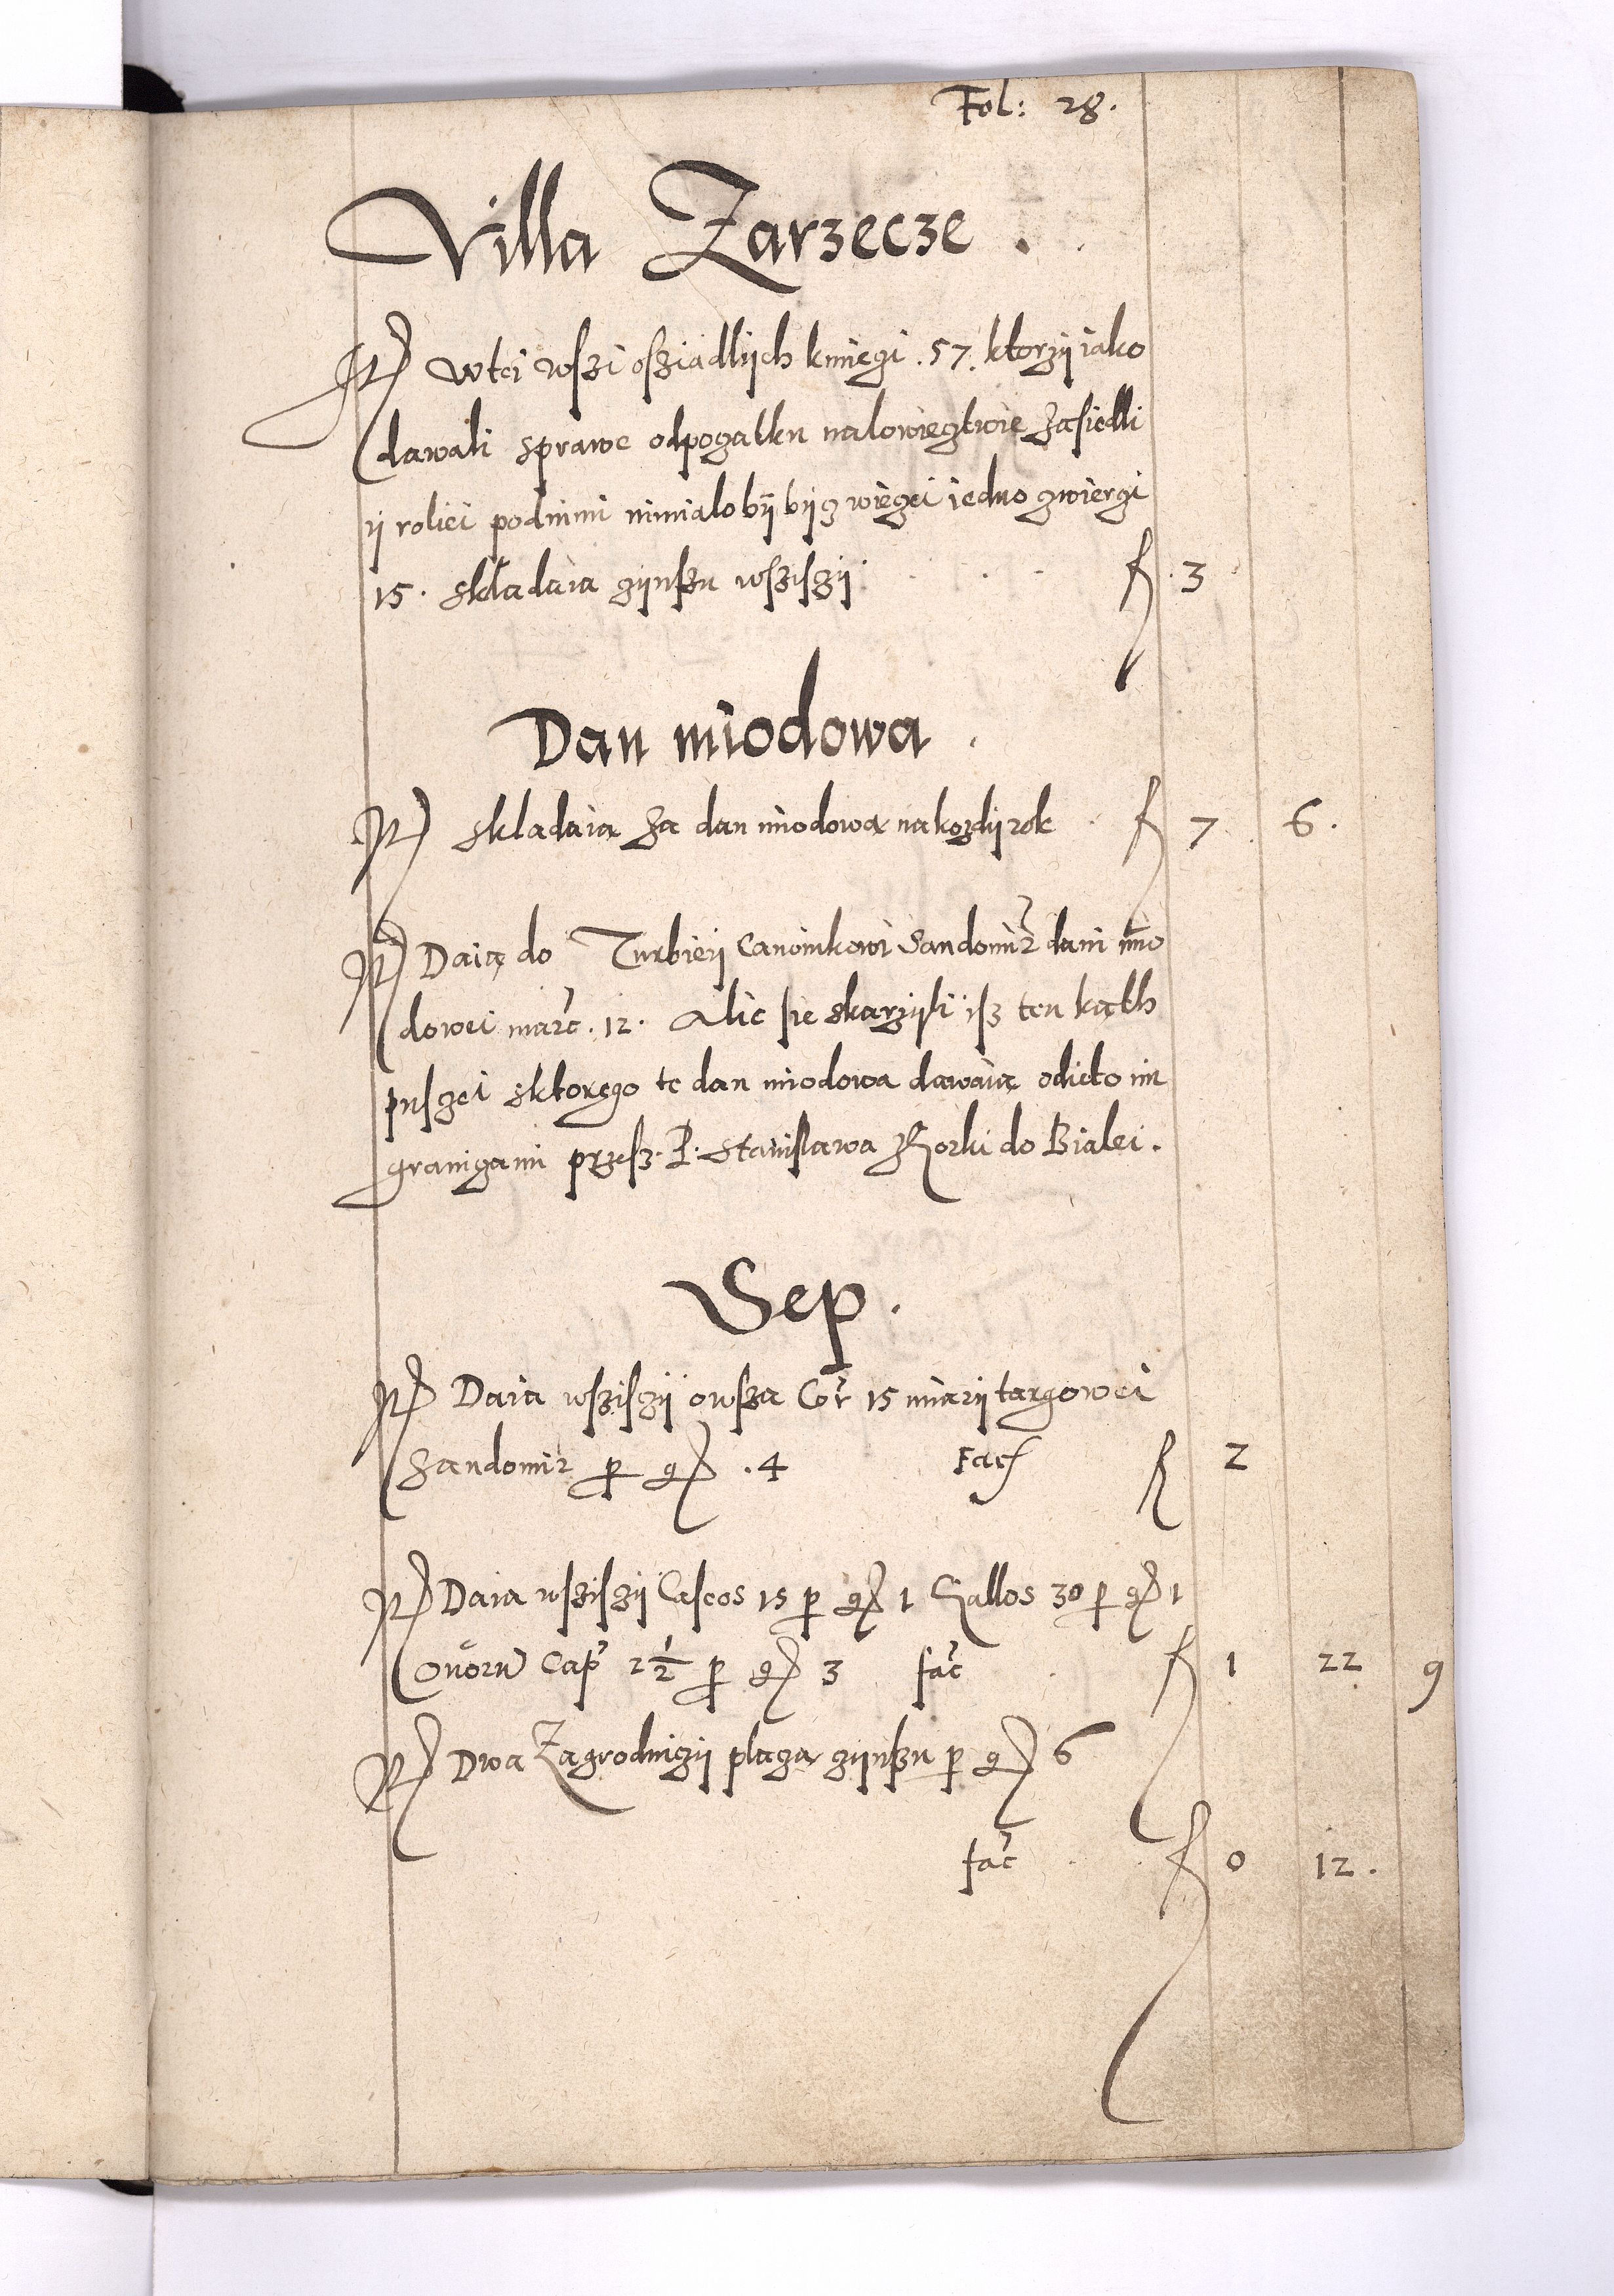 Fol: 28.
Villa Zarzecze.
It wtei wszi osziadlÿch kmiegi. 57. ktorzÿ iako
dawali sprawe odpogatku nalowiegtwie zasiedli
ÿ roliei podnimi nimialo bÿ bÿg wiegei iedno gwiergi
15. skladaia gÿnszu wszisgÿ f. 3
Dan miodowa.
It skladaia za dan miodowa nakozdÿ rok f 7 6.
It Daią do Turbieÿ Canonikowi Sandomir dani mio
dowei marc. 12. Alie sie skarzÿli isz ten kąth
pusgei sktorego te dan miodowa dawaią odieto im
granigami przesz. P. Stanislawa Gorki do Bialei.
Sep.
It Daia wszisgÿ owsza Cor 15 miarÿ targowei
Sandomir p g. 4 Facf f 2
It Daia wszisgÿ Caseos 15 p g 1 Gallos 30 p g 1
Ovoru Cap 2 1/2 p g 3 fac f 1 22 9
It Dwa Zagrodnigÿ placzą gÿnszu p g 6
fac f 0 12.